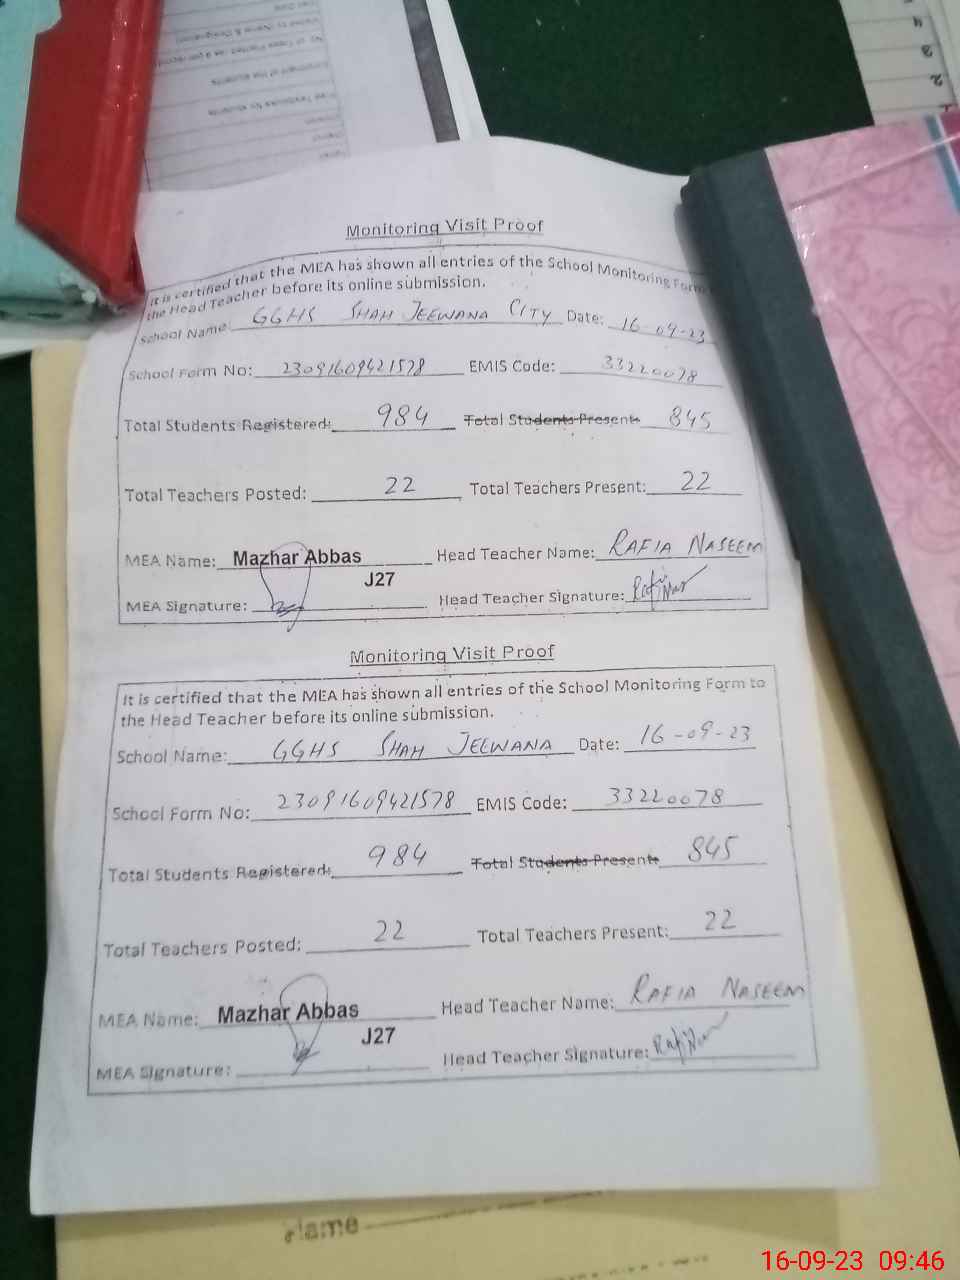 Monitoring Visit Proof
It is certified that the MEA has shown all entries of the School Monitoring Form
the Head Teacher before its online submission.
School Name: GGHS SHAH JEEWANA CITY Date: 16-09-23
School Form No: 23091609421578 EMIS Code: 33220078
Total Students Registered: 984 Total Students Present: 845
Total Teachers Posted: 22 Total Teachers Present: 22
MEA Name: Mazhar Abbas Head Teacher Name: RAFIA NASEEM
J27
MEA Signature: Head Teacher Signature:
Monitoring Visit Proof
It is certified that the MEA has shown all entries of the School Monitoring Form to
the Head Teacher before its online submission.
School Name: GGHS SHAH JEEWANA Date: 16-09-23
School Form No: 23091609421578 EMIS Code: 33220078
Total Students Registered: 984 Total Students Present: 845
Total Teachers Posted: 22 Total Teachers Present: 22
MEA Name: Mazhar Abbas Head Teacher Name: RAFIA NASEEM
J27
MEA Signature: Head Teacher Signature:
Name
16-09-23 09:46